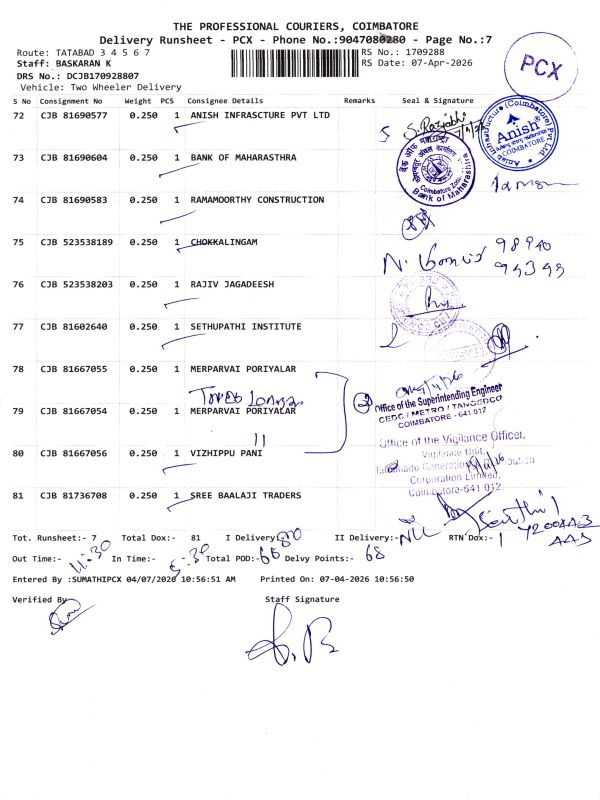 THE PROFESSIONAL COURIERS, COIMBATORE
Delivery Runsheet - PCX - Phone No.:9047080280 - Page No.:7
Route: TATABAD 3 4 5 6 7
RS No.: 1709288
Staff: BASKARAN K
RS Date: 07-Apr-2026
DRS No.: DCJB170928807
Vehicle: Two Wheeler Delivery
PCX
S No Consignment No Weight PCS Consignee Details Remarks Seal & Signature
72 CJB 81690577 0.250 1 ANISH INFRASCTURE PVT LTD
Anish
COIMBATORE
73 CJB 81690604 0.250 1 BANK OF MAHARASTHRA
Bank of Maharashtra
74 CJB 81690583 0.250 1 RAMAMOORTHY CONSTRUCTION
75 CJB 523538189 0.250 1 CHOKKALINGAM
98940
94349
76 CJB 523538203 0.250 1 RAJIV JAGADEESH
77 CJB 81602640 0.250 1 SETHUPATHI INSTITUTE
78 CJB 81667055 0.250 1 MERPARVAI PORIYALAR
Office of the Superintending Engineer
CEDC / METRO / TANGEDCO
COIMBATORE - 641 012
79 CJB 81667054 0.250 1 MERPARVAI PORIYALAR
11
Office of the Vigilance Officer,
Vigilance Unit,
80 CJB 81667056 0.250 1 VIZHIPPU PANI
Corporation Limited,
Coimbatore-641 012.
81 CJB 81736708 0.250 1 SREE BAALAJI TRADERS
Tot. Runsheet:- 7 Total Dox:- 81 I Delivery:- II Delivery:- NIL RTN Dox:- 1
Out Time:- 11:30 In Time:- 5:30 Total POD:- 68 Delvy Points:- 68
Entered By :SUMATHIPCX 04/07/2026 10:56:51 AM Printed On: 07-04-2026 10:56:50
Verified By
Staff Signature